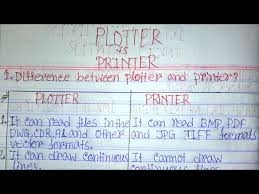 PLOTTER
Vs
PRINTER
1. Difference between plotter and printer?
PLOTTER PRINTER
1. It can read files in the It can read BMP, PDF
DWG, CDR, AI and other and JPG TIFF formats
vector formats.
2. It can draw continuous It cannot draw
lines. continuous lines.